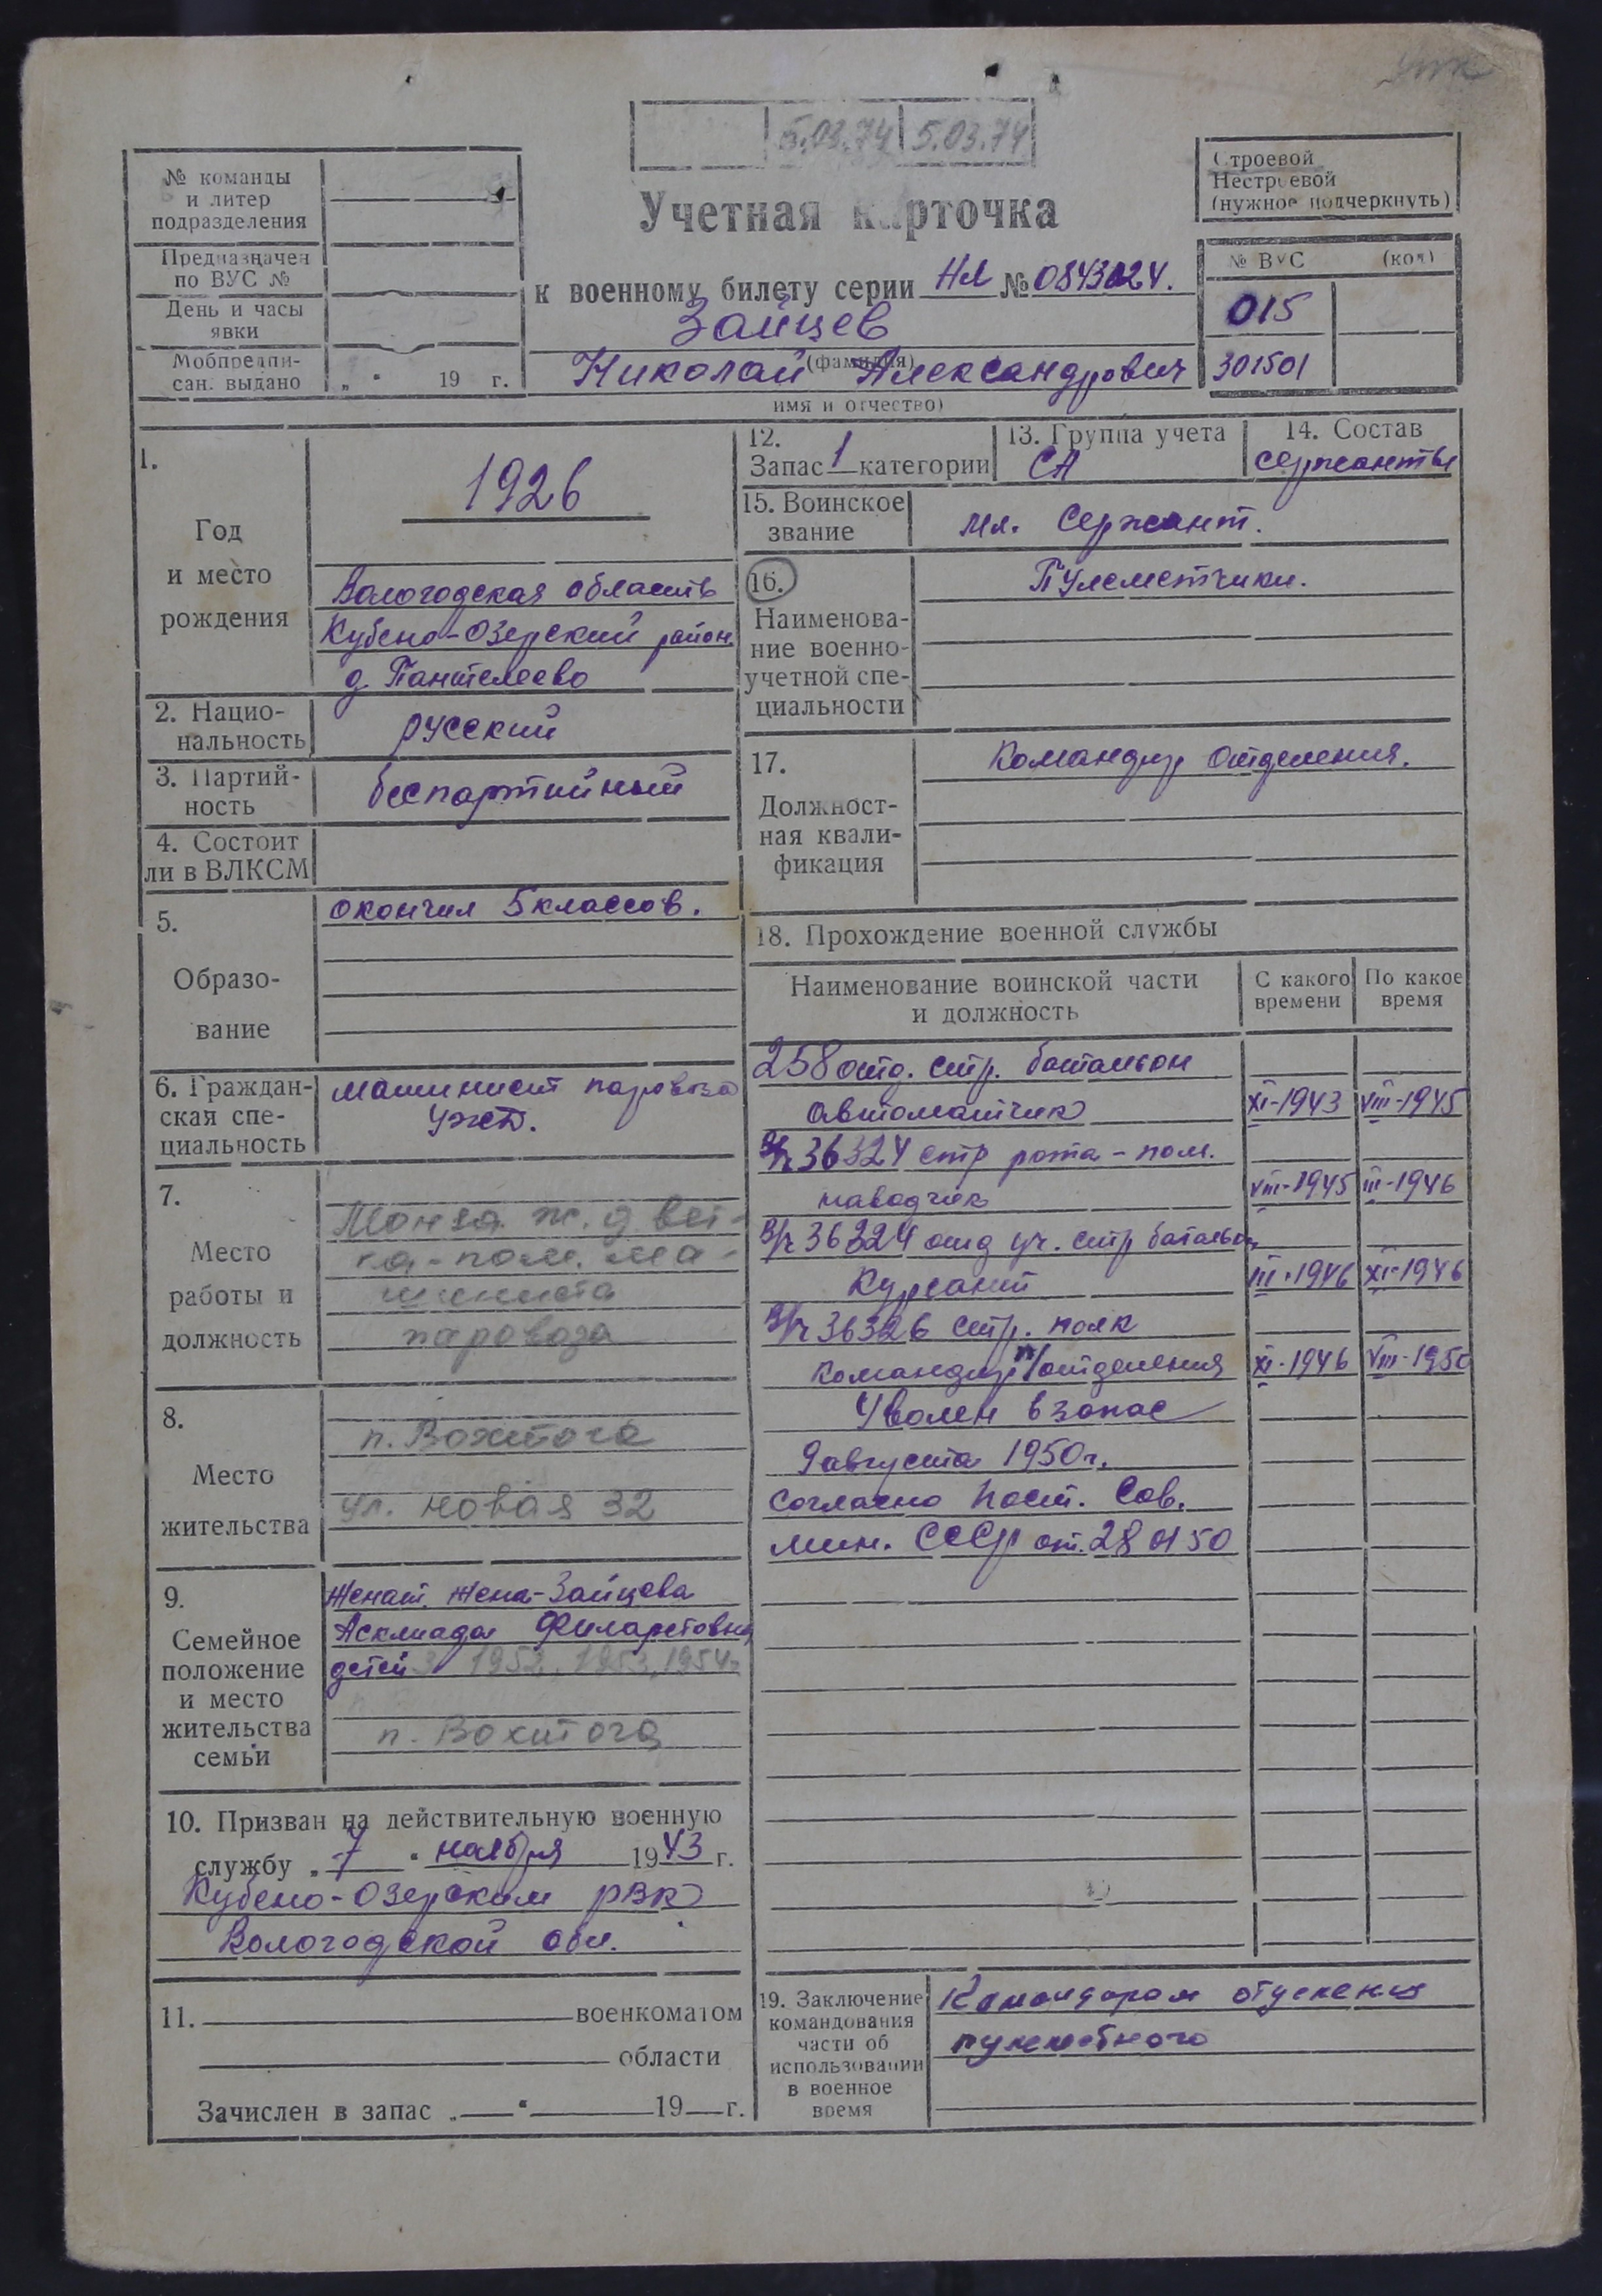 5.03.74 5.03.74
№ команды
и литер
подразделения
Предназначен
по ВУС №
День и часы
явки
Мобпредпи-
сан. выдано „ “ 19 г.
Учетная карточка
к военному билету серии НЛ № 0843024.
Зайцев
(фамилия)
Николай Александрович
имя и отчество)
Строевой
Нестроевой
(нужное подчеркнуть)
№ ВУС (код)
015
301501
1.
Год
и место
рождения
1926
Вологодская область
Кубено-Озерский район
д. Пантелеево
2. Нацио-
нальность
русский
3. Партий-
ность
беспартийный
4. Состоит
ли в ВЛКСМ
5.
Образо-
вание
окончил 5 классов.
6. Граждан-
ская спе-
циальность
машинист паровоза
ужд.
7.
Место
работы и
должность
Монза. ж. д вет-
ка - пом. ма-
шиниста
паровоза
8.
Место
жительства
п. Вохтога
ул. новая 32
9.
Семейное
положение
и место
жительства
семьи
Женат. Жена - Зайцева
Асклиада Филаретовна
детей 3 1952, 1953, 1954г
п. Вохтога
10. Призван на действительную военную
службу „ 7 “ ноября 1943 г.
Кубено-Озерским РВК
Вологодской обл.
11. военкоматом
области
Зачислен в запас „ “ 19 г.
12.
Запас 1 категории
13. Группа учета
СА
14. Состав
сержанты
15. Воинское
звание
мл. Сержант.
16.
Наименова-
ние военно-
учетной спе-
циальности
Пулеметчики.
17.
Должност-
ная квали-
фикация
Командир отделения.
18. Прохождение военной службы
Наименование воинской части
и должность
С какого
времени
По какое
время
258 отд. стр. батальон
автоматчик XI-1943 VIII-1945
В/ч 36324 стр рота - пом.
наводчик VIII-1945 III-1946
В/ч 36324 отд уч. стр батальон
Курсант III-1946 XI-1946
В/ч 36326 стр. полк
Командир отделения XI-1946 VIII-1950
Уволен в запас
9 августа 1950г.
Согласно Пост. Сов.
мин. СССР от. 28 01 50
19. Заключение
командования
части об
использовании
в военное
время
Командиром отделения
пулеметного